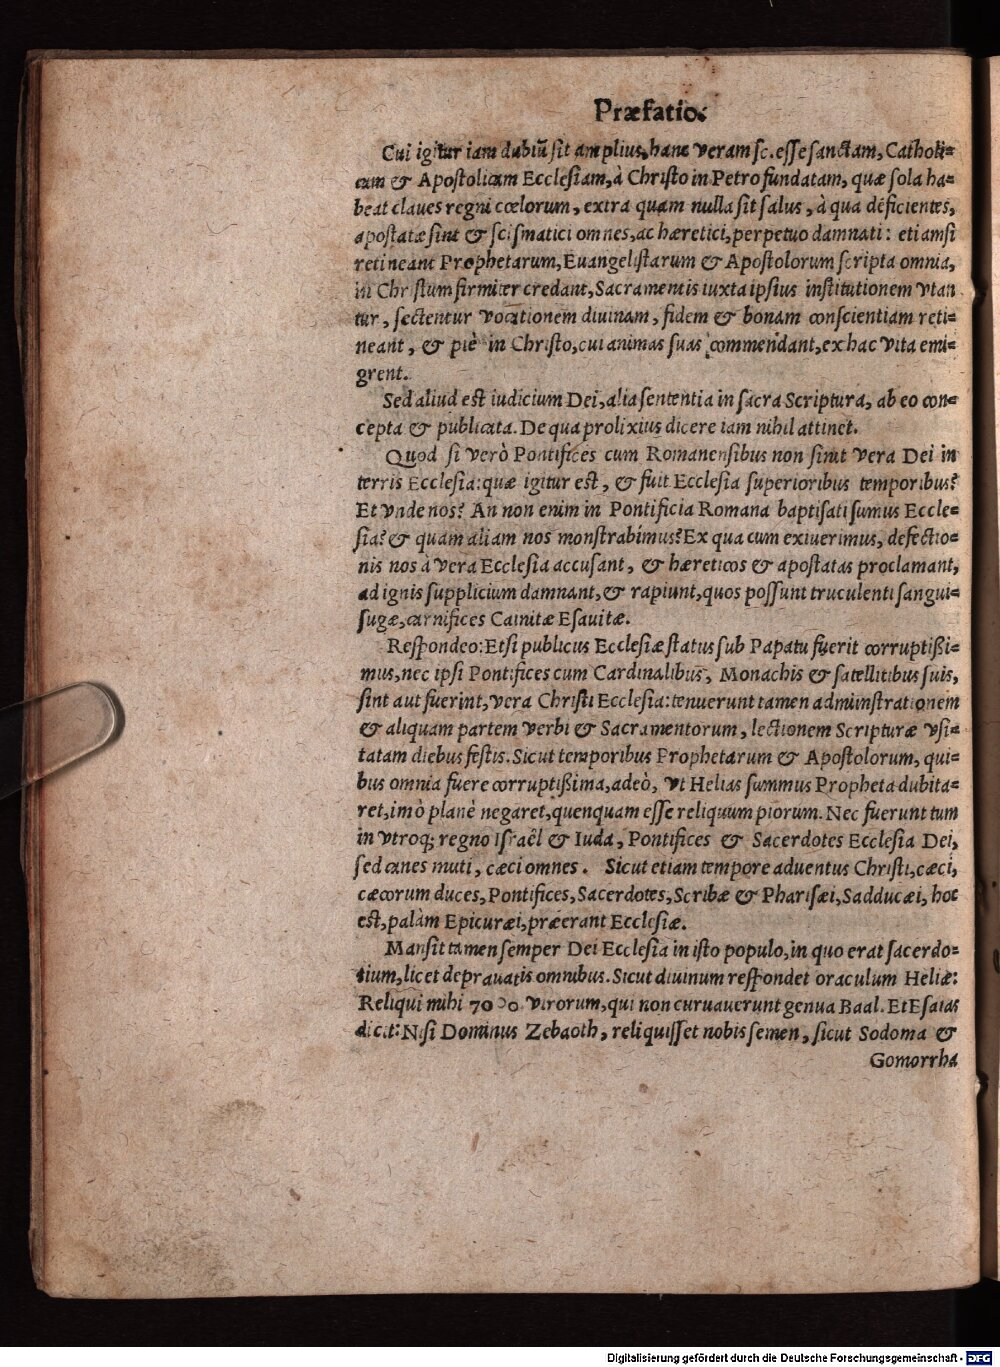 Præfatio.
Cui igitur iam dubiũ sit amplius, hanc veram sc. esse sanctam, Catholi-
cam & Apostolicam Ecclesiam, à Christo in Petro fundatam, quæ sola ha-
beat claues regni cœlorum, extra quam nulla sit salus, à qua deficientes,
apostatæ sint & scismatici omnes, ac hæretici, perpetuo damnati: etiamsi
retineant Prophetarum, Euangelistarum & Apostolorum scripta omnia,
in Christum firmiter credant, Sacramentis iuxta ipsius institutionem vtan
tur, sectentur vocationem diuinam, fidem & bonam conscientiam reti-
neant, & piè in Christo, cui animas suas commendant, ex hac vita emi-
grent.
Sed aliud est iudicium Dei, alia sententia in sacra Scriptura, ab eo con-
cepta & publicata. De qua prolixius dicere iam nihil attinet.
Quod si verò Pontifices cum Romanensibus non sint vera Dei in
terris Ecclesia: quæ igitur est, & fuit Ecclesia superioribus temporibus?
Et vnde nos? An non enim in Pontificia Romana baptisati sumus Eccle-
sia? & quam aliam nos monstrabimus? Ex qua cum exiuerimus, defectio-
nis nos à vera Ecclesia accusant, & hæreticos & apostatas proclamant,
ad ignis supplicium damnant, & rapiunt, quos possunt truculenti sangui-
sugæ, carnifices Cainitæ Esauitæ.
Respondeo: Etsi publicus Ecclesiæ status sub Papatu fuerit corruptißi-
mus, nec ipsi Pontifices cum Cardinalibus, Monachis & satellitibus suis,
sint aut fuerint, vera Christi Ecclesia: tenuerunt tamen administrationem
& aliquam partem verbi & Sacramentorum, lectionem Scripturæ vsi-
tatam diebus festis. Sicut temporibus Prophetarum & Apostolorum, qui-
bus omnia fuere corruptißima, adeò, vt Helias summus Propheta dubita-
ret, imò planè negaret, quenquam esse reliquum piorum. Nec fuerunt tum
in vtroq; regno Israêl & Iuda, Pontifices & Sacerdotes Ecclesia Dei,
sed canes muti, cæci omnes. Sicut etiam tempore aduentus Christi, cæci,
cæcorum duces, Pontifices, Sacerdotes, Scribæ & Pharisæi, Sadducæi, hoc
est, palàm Epicuræi, præerant Ecclesiæ.
Mansit tamen semper Dei Ecclesia in isto populo, in quo erat sacerdo-
tium, licet deprauatis omnibus. Sicut diuinum respondet oraculum Heliæ:
Reliqui mihi 7000 virorum, qui non curuauerunt genua Baal. Et Esaias
dicit: Nisi Dominus Zebaoth, reliquisset nobis semen, sicut Sodoma &
Gomorrha
Digitalisierung gefördert durch die Deutsche Forschungsgemeinschaft - DFG